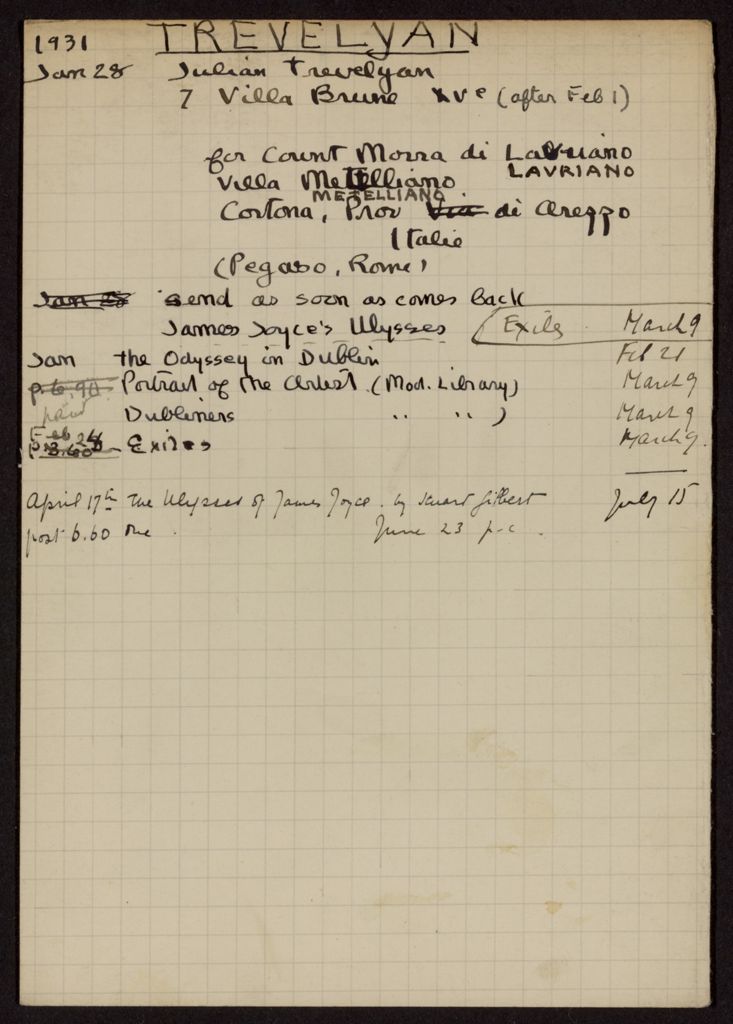 1931 TREVELYAN
Jan 28 Julian Trevelyan
7 Villa Brune XVe (after Feb 1)
for Count Morra di Lavriano
LAVRIANO
Villa Metelliano
METELLIANO
Cortona, Prov Via di Arezzo
Italie
(Pegaso, Rome)
Jan 28 send as soon as comes back
James Joyce's Ulysses (Exiles March 9
Jan the Odyssey in Dublin Feb 21
p. 6.90 Portrait of the Artist (Mod. Library) March 9
paid Dubliners " " ) March 9
Feb 28
p. 3.60 Exiles March 9.
April 17th The Ulysses of James Joyce. by Stuart Gilbert July 15
post 6.60 June 23 p.c.